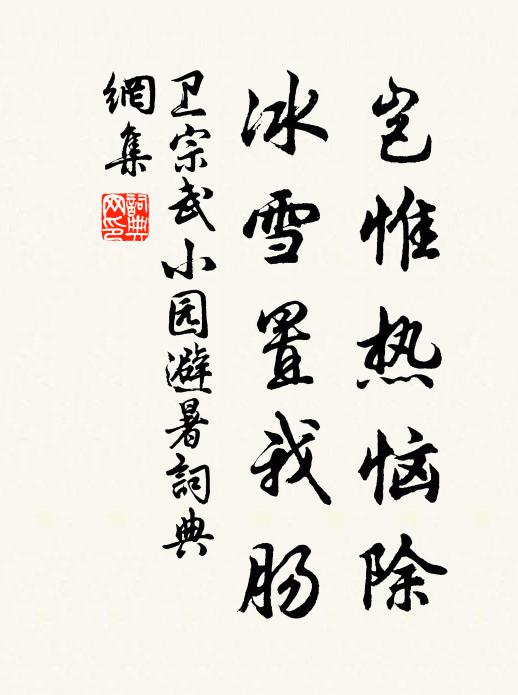 岂惟热恼除
冰雪置我肠
卫宗武小园避暑詞典
網集
詞典
网印